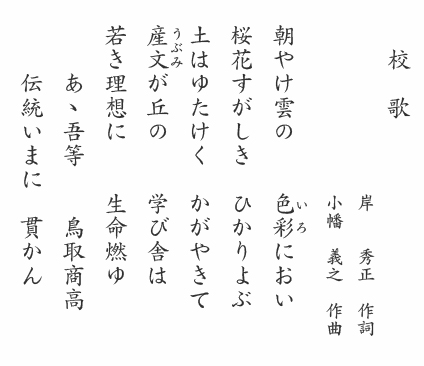 校歌
岸 秀正 作詞
小幡 義之 作曲
朝やけ雲の 色彩におい
いろ
桜花すがしき ひかりよぶ
土はゆたけく かがやきて
産文が丘の 学び舎は
うぶみ
若き理想に 生命燃ゆ
あゝ吾等 鳥取商高
伝統いまに 貫かん